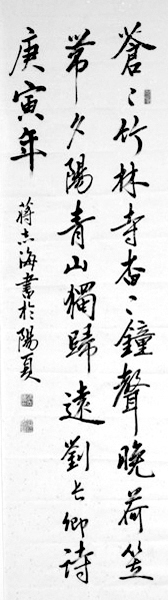 蒼〻竹林寺杳〻鐘聲晚荷笠
帶夕陽青山獨歸遠劉長卿詩
庚寅年
蔣志海書於陽夏